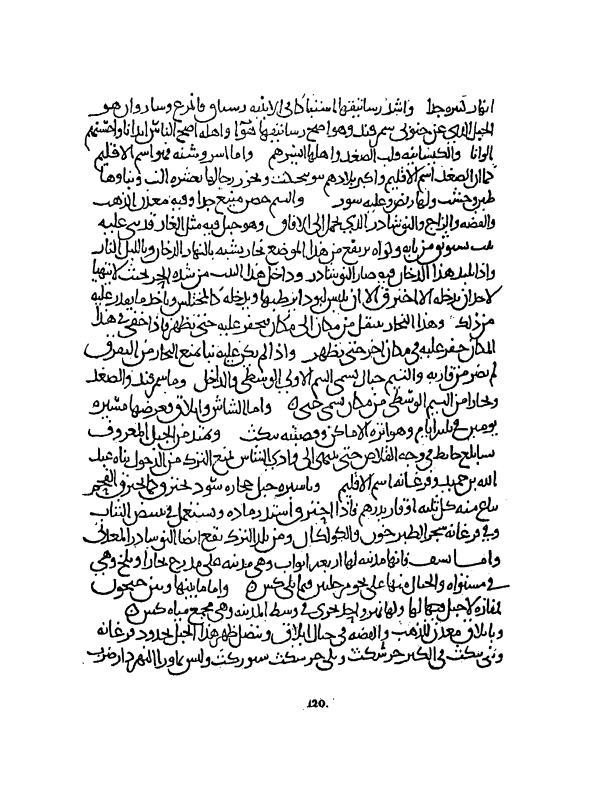 انهار كثيره جدا واشد رساتيقها اشتباكا في الابنيه رستاق وساروان هو
الجبل الذي عن جنوبي سمرقند وهو اصح رساتيقها هوا واهله اصح الناس ابدانا واحسنهم
الوانا والكشانيه قلب الصغد واهلها ايسرهم واما اسروشنه فهو اسم الاقليم
كما ان الصغد اسم الاقليم واكبر بلادهم ويحزر رجالها بعشره الف وبناوها
طين وخشب ولها ربض وعليه سور والبتم حصن منيع جدا وفيه معدن الذهب
والفضه والزاج والنوشادر الذي يحمل الى الافاق وهو جبل فيه مثل الغار قد بني عليه
بيت يستوثق من بابه وكواه يرتفع من هذا الموضع بخار يشبه بالنهار الدخان وبالليل النار
واذا تلبد هذا الدخان فيه صار النوشادر وداخل هذا البيت من شده الحر بحيث لا يتهيا
لاحد ان يدخله الا احترق الا ان يلبس لبودا يرطبها ويدخله كالمختلس وياخذ ما يقدر عليه
من ذلك وهذا البخار ينتقل من مكان الى مكان فيحفر عليه حتى يظهر فاذا خفي في هذا
المكان حفر عليه في مكان اخر حتى يظهر واذا لم يكن عليه بنا يمنع البخار من التفرق
لم يضر من قاربه والبتم جبال تسمى البتم الاولى والوسطى والداخل وما سمرقند والصغد
وبخارا من البتم الوسطى من مكان تسمى واما الشاش وايلاق فعرضها مسيره
يومين في ثلثه ايام وهو انزه الاماكن وقصبته بنكث ويمتد من الجبل المعروف
بسابلغ حائط في وجه القلاص حتى ينتهي الى وادي الشاش يمنع الترك من الدخول بناه عبد
الله بن حميد وفرغانه اسم الاقليم وباسبره جبل حجاره سود تحترق كما يحترق الفحم
يباع منه كل ثلثه اوقار بدرهم فاذا احترق اشتد رماده ويستعمل في تبييض الثياب
وفي فرغانه شجر الطبرخون والكولكان ومن بلد الترك يقع ايضا النوشادر المعدني
واما نسف فانها مدينه لها اربعه ابواب وهي مدينه على مدرج بخارا وبلخ وهي
في مستواه والجبال منها على نحو مرحلتين فيما يلي كس واما ما بينها وبين جيحون
مفازه لا جبل لها ولها نهر واحد يجري في وسط المدينه وهي مجمع مياه كس
وبايلاق معدن للذهب والفضه في جبال ايلاق ويتصل ظهر هذا الجبل بحدود فرغانه
وتلي بنكث في الكبر خرشكث ويلي خرشكث شتوركث وليس بماورا النهر دار ضرب
120.